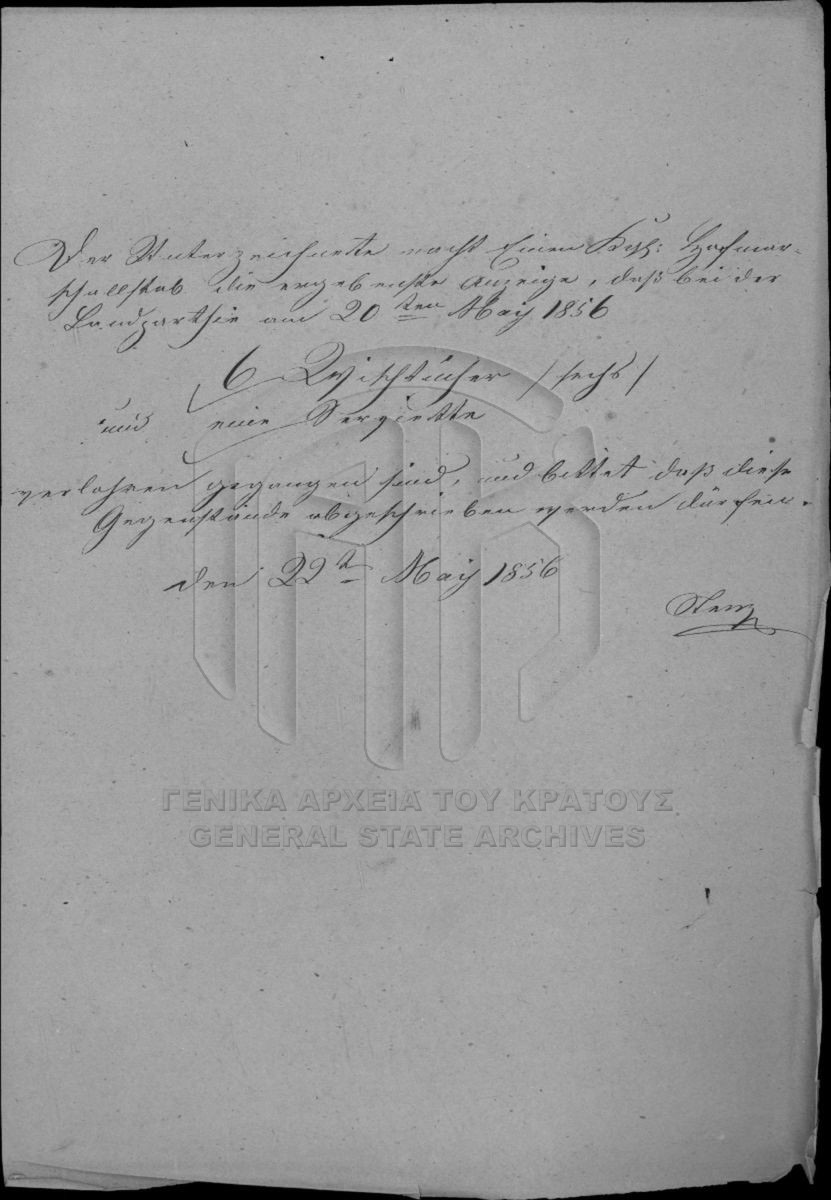 Der Unterzeichnete macht Einem Kgl: Hofmar-
schallstab die ergebenste Anzeige, daß bei der
Landparthie am 20ten May 1856
6 Wischtücher /sechs/
und eine Serviette
verlohren gegangen sind, und bittet daß diese
Gegenstände abgeschrieben werden dürfen.
den 22t May 1856
ΓΕΝΙΚΑ ΑΡΧΕΙΑ ΤΟΥ ΚΡΑΤΟΥΣ
GENERAL STATE ARCHIVES